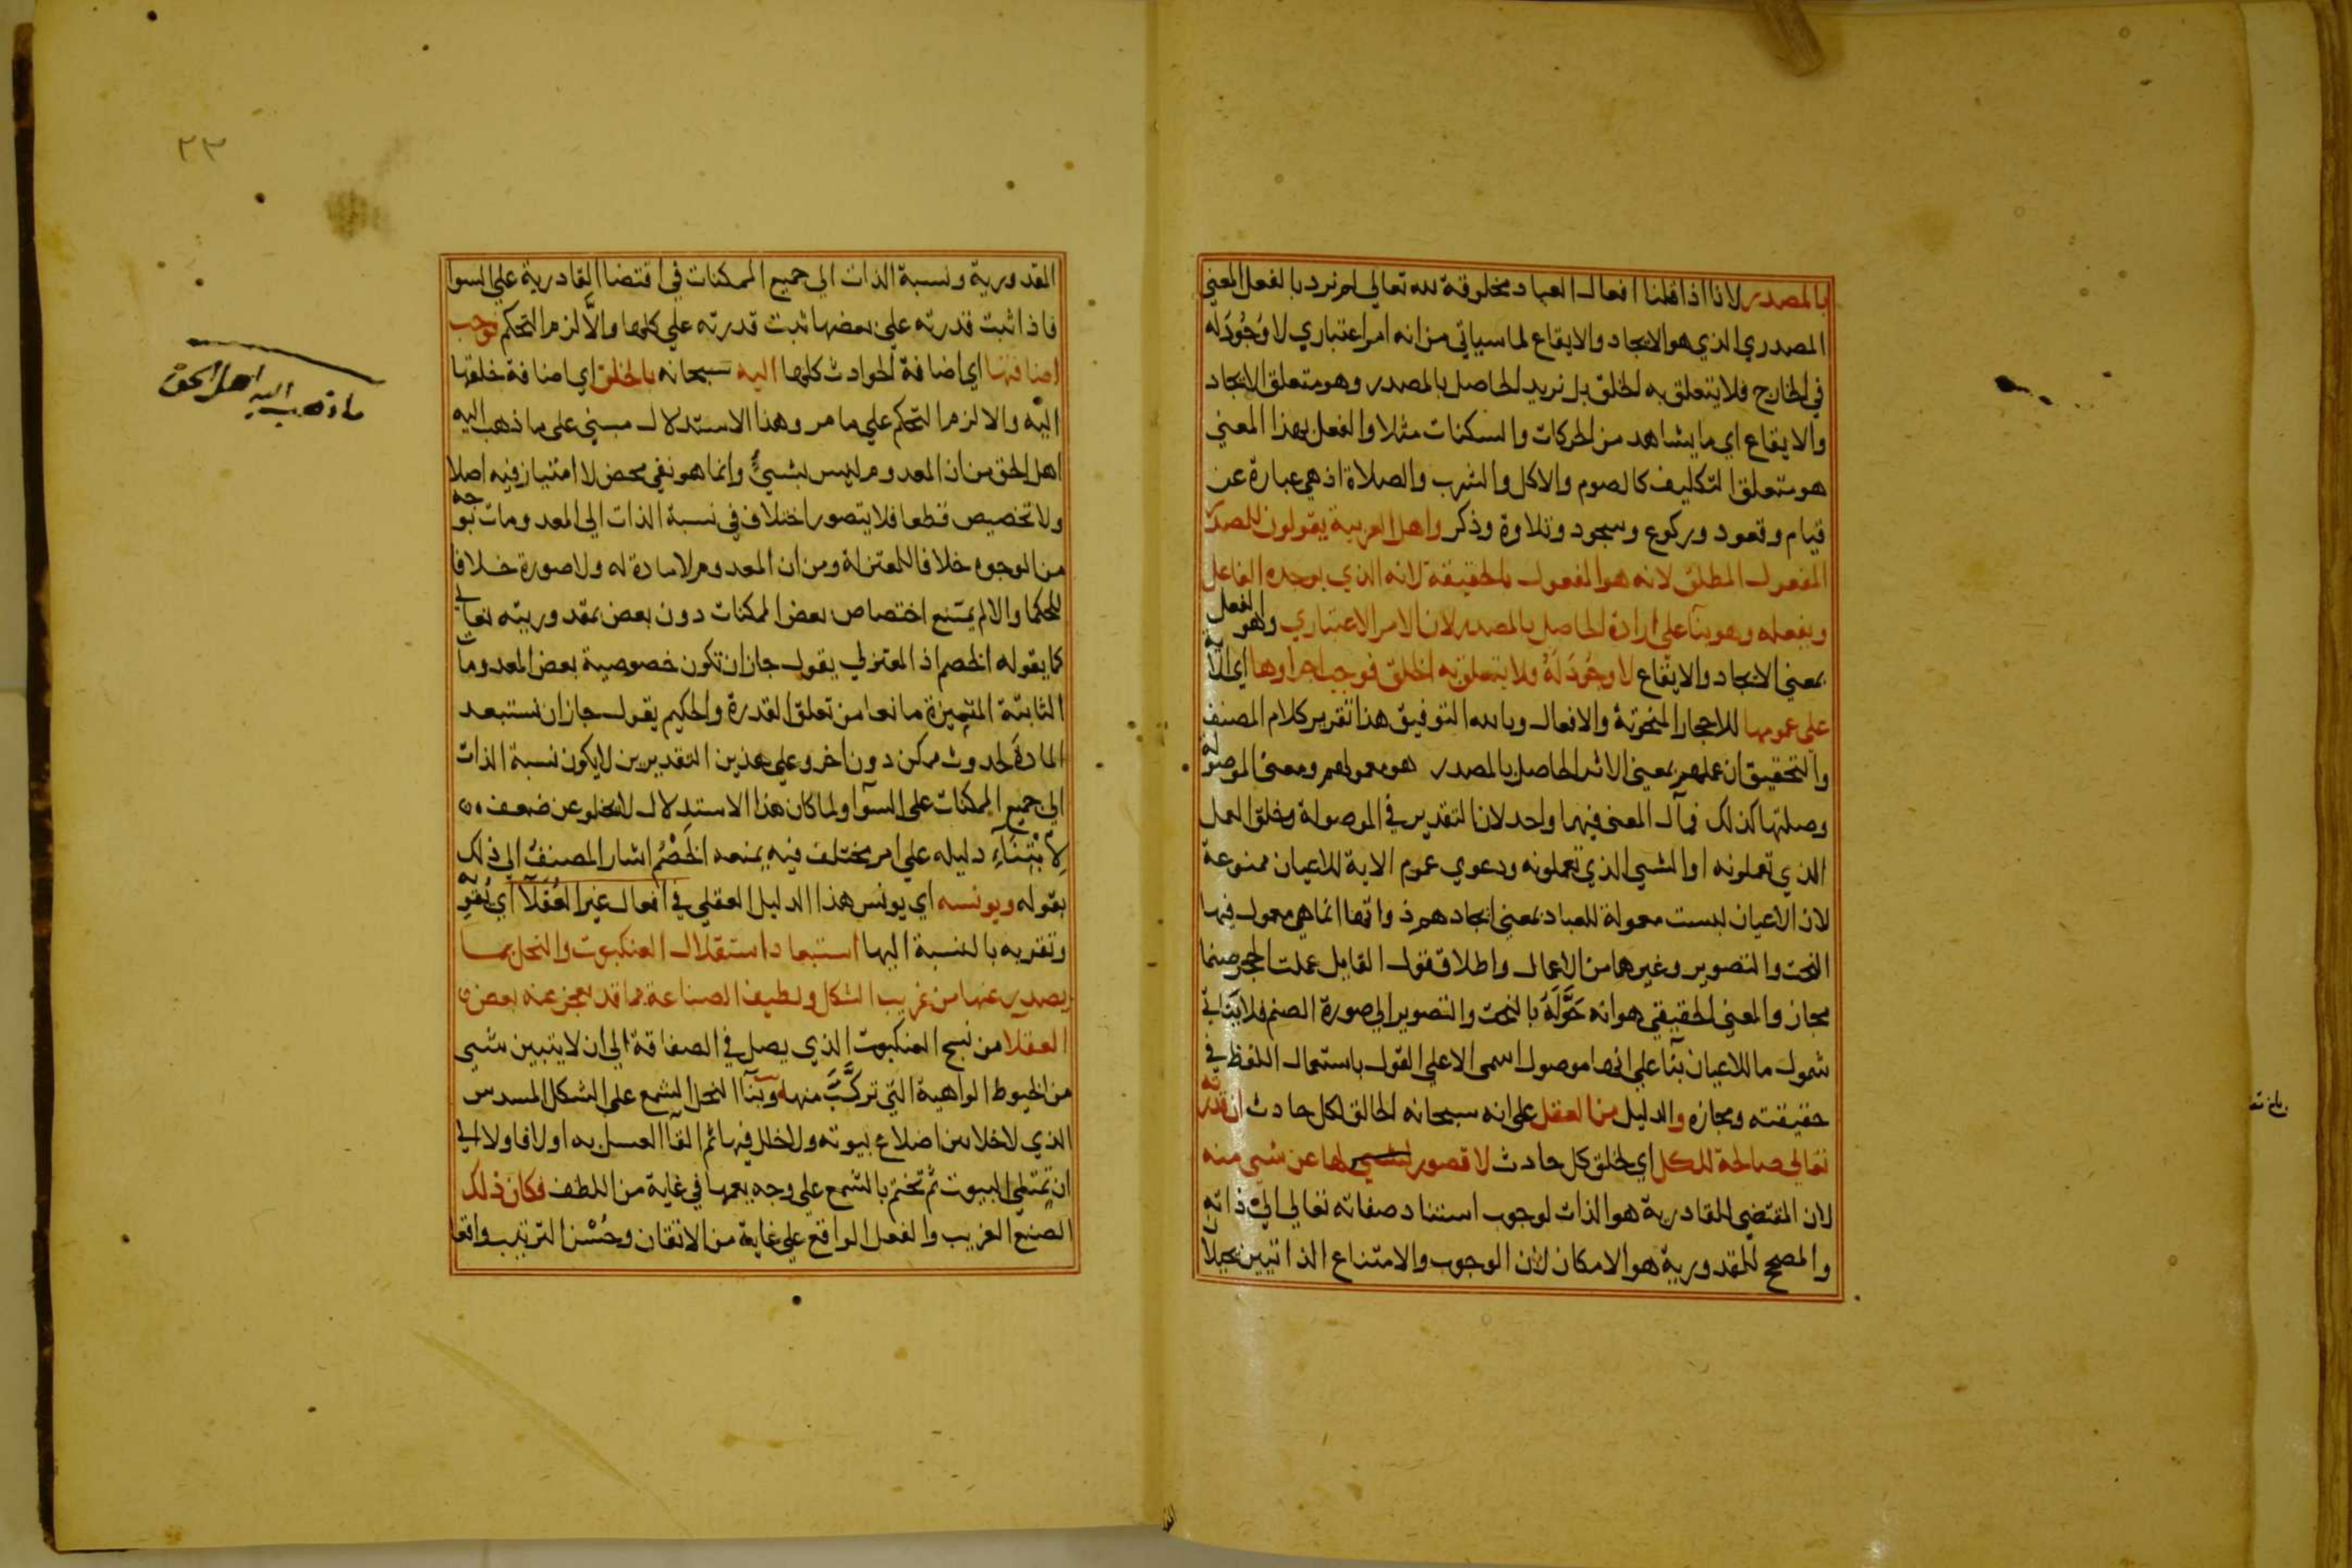 بالمصدر لانا اذا قلنا افعال العباد مخلوقة لله تعالي لم نرد بالفعل المعني
المصدري الذي هو الايجاد والايقاع لما سياتي من انه امر اعتباري لا وُجُودَ له
في الخارج فلا يتعلق به الخلق بل نريد الحاصل بالمصدر وهو متعلق الايجاد
والايقاع اي ما يشاهد من الحركات والسكنات مثلا والفعل بهذا المعني
هو متعلق التكليف كالصوم والاكل والشرب والصلاة اذ هي عبارة عن
قيام وقعود وركوع وسجود وتلاوة وذكر واهل العربية يقولون للمصدر
المفعول المطلق لانه هو المفعول بالحقيقة لانه الذي يوجده الفاعل
ويفعله وهو بنآ علي ارادة الحاصل بالمصدر لان الامر الاعتباري وهو الفعل
بمعني الايجاد والايقاع لا وجُودَ لَهُ ولا يتعلق به الخلق فوجب اجراوها اي الآية
علي عمومها للاحجار المنحوتة والافعال وبالله التوفيق هذا تقرير كلام المصنف
والتحقيق ان عملهم بمعني الاثر الحاصل بالمصدر هو معمولهم ومعني الموصولة
وصلتها كذلك فمآل المعني فيهما واحد لان التقدير في الموصولة وخلق العمل
الذي تعملونه او الشي الذي تعملونه ودعوي عموم الاية للاعيان ممنوعة
لان الاعيان ليست معمولة للعباد بمعني ايجادهم ذواتها انما هي معمول فيها
النحت والتصوير وغيرهما من الاعمال واطلاق قول القايل عملت الحجر صنما
مجاز والمعني الحقيقي هو انه حَوَّلَهُ بالنحت والتصوير الي صورة الصنم فلا يتاتي
شمول ما للاعيان بنآ علي انها موصول اسمي الا علي القول باستعمال اللفظ في
حقيقته ومجازه والدليل من العقل علي انه سبحانه الخالق لكل حادث ان قدرته
تعالي صالحة للكل اي لخلق كل حادث لا قصور لها عن شي منه
لان المقتضي للقادرية هو الذات لوجوب استناد صفاته تعالي الي ذاته
والمصحح للمقدورية هو الامكان لان الوجوب والامتناع الذاتيين يحيلان
المقدورية ونسبة الذات الي جميع الممكنات في اقتضا القادرية علي السوا
فاذا ثبت قدرته علي بعضها ثبت قدرته علي كلها والَّا لزم التحكم فوجب
اضافتها اي اضافة الحوادث كلها اليه سبحانه بالخلق اي اضافة خلقها
اليه والا لزم التحكم علي ما مر وهذا الاستدلال مبني علي ما ذهب اليه
اهل الحق من ان المعدوم ليس بشيئ وانما هو نفي محض لا امتياز فيه اصلا
ولا تخصيص قطعا فلا يتصور اختلاف في نسبة الذات الي المعدومات بوجه
من الوجوه خلافا للمعتزلة ومن ان المعدوم لا مادة له ولا صورة خلافا
للحكما والا لم يمتنع اختصاص بعض الممكنات دون بعض بمقدوريته تعالي
كما يقوله الخصم اذ المعتزلي يقول جاز ان تكون خصوصية بعض المعدومات
الثابتة المتميزة مانعا من تعلق القدرة والحكيم يقول جاز ان تستبعد
المادة لحدوث ممكن دون اخر وعلي هذين التقديرين لا يكون نسبة الذات
الي جميع الممكنات علي السوآ ولما كان هذا الاستدلال لا يخلو عن ضعف
لِابْتِنَآءِ دليله علي امر مختلف فيه يمنعه الخَصْمُ اشار المصنف الي ذلك
بقوله ويونسه اي يونس هذا الدليل العقلي في افعال غير العُقَلَآ اي يُقويه
وتقربه بالنسبة اليها استبعاد استقلال العنكبوت والنحل بما
يصدر عنها من غريب الشكل ولطيف الصناعة مما قد يعجز عنه بعض
العقلا من نسج العنكبوت الذي يصل في الصفاقة الي ان لا يتبين شي
من الخيوط الواهية التي تركَّبَ منها وبنآ النحل الشمع علي الشكل المسدس
الذي لا خلا بين اضلاع بيوته ولا خلل فيها ثم القآ العسل به اولا فاولا الي
ان تمتلي البيوت ثم تختم بالشمع علي وجه يعمها في غاية من اللطف فكان ذلك
الصنع الغريب والفعل الواقع علي غاية من الاتقان وحُسْن الترتيب واقعا
ما ذهب اليه اهل الحق
٢٣